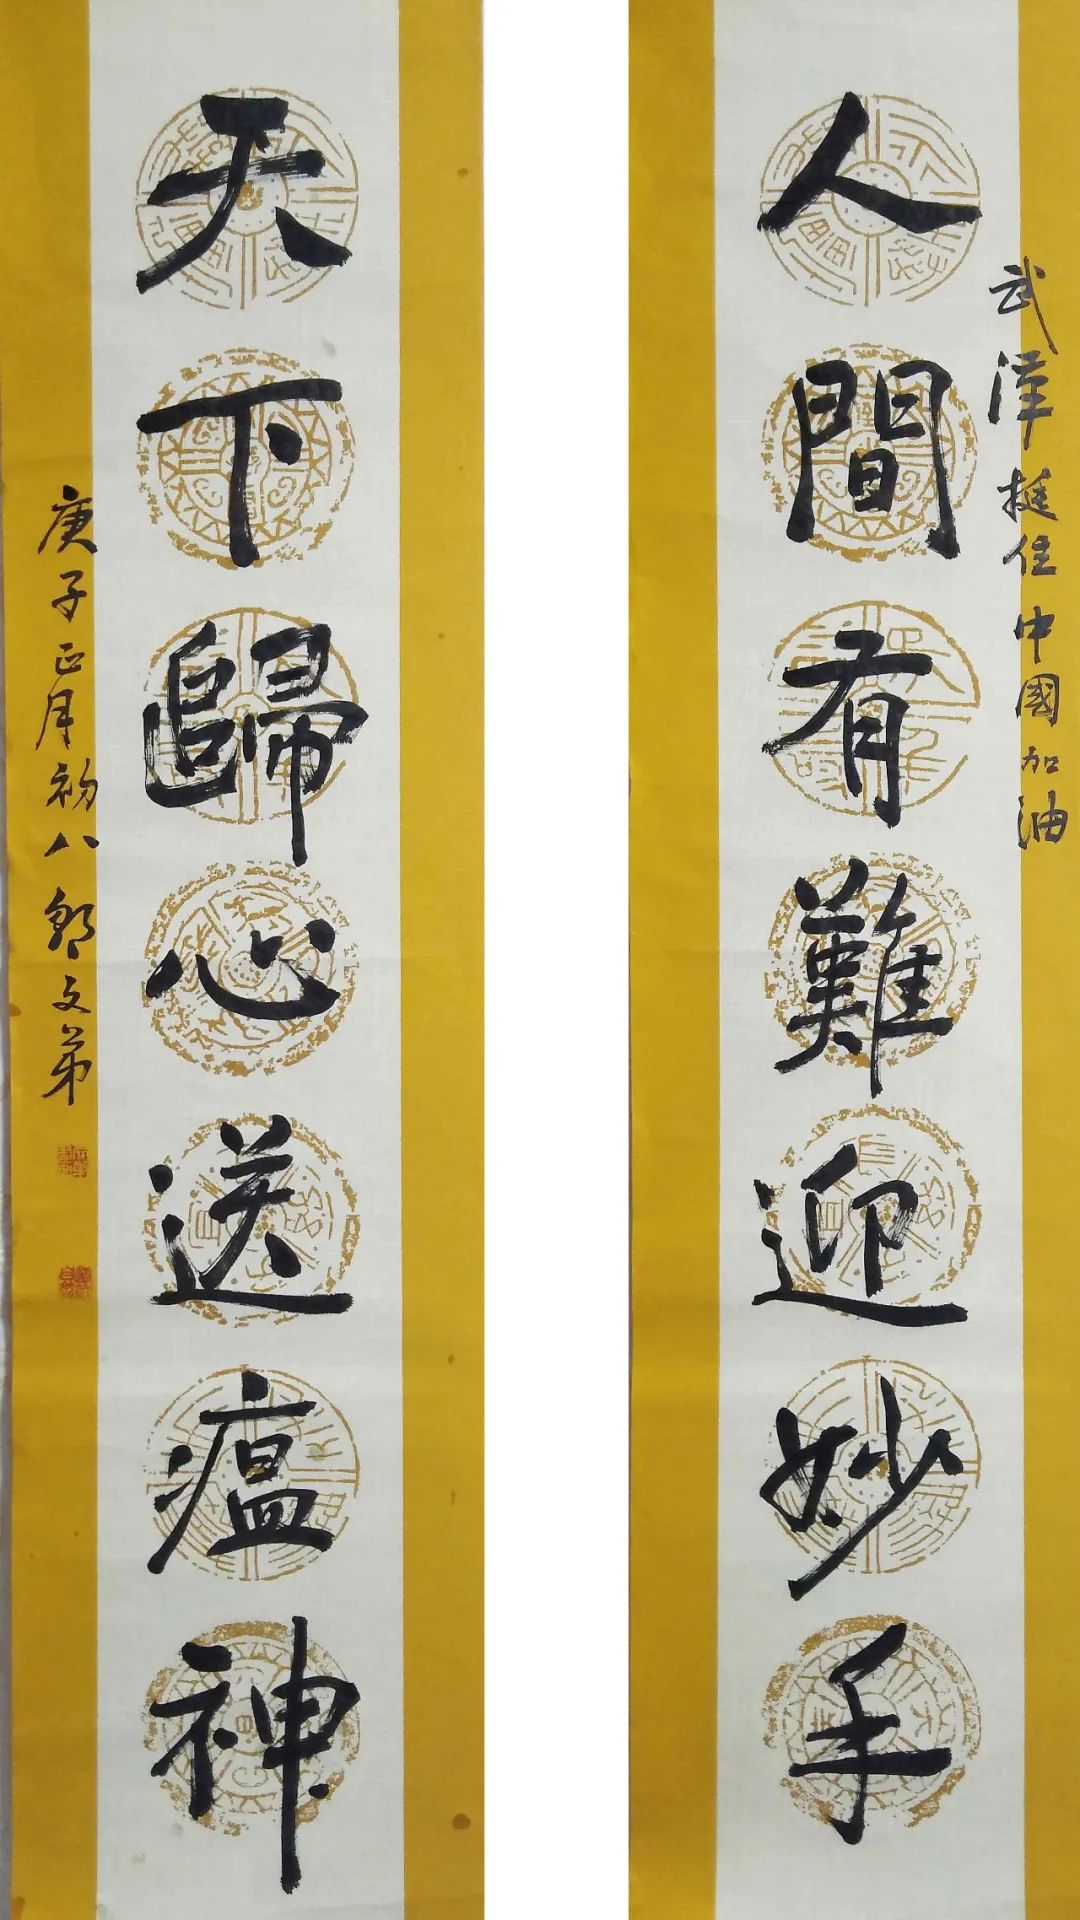 武漢挺住中國加油
人間有難迎妙手
天下歸心送瘟神
庚子正月初八文弟